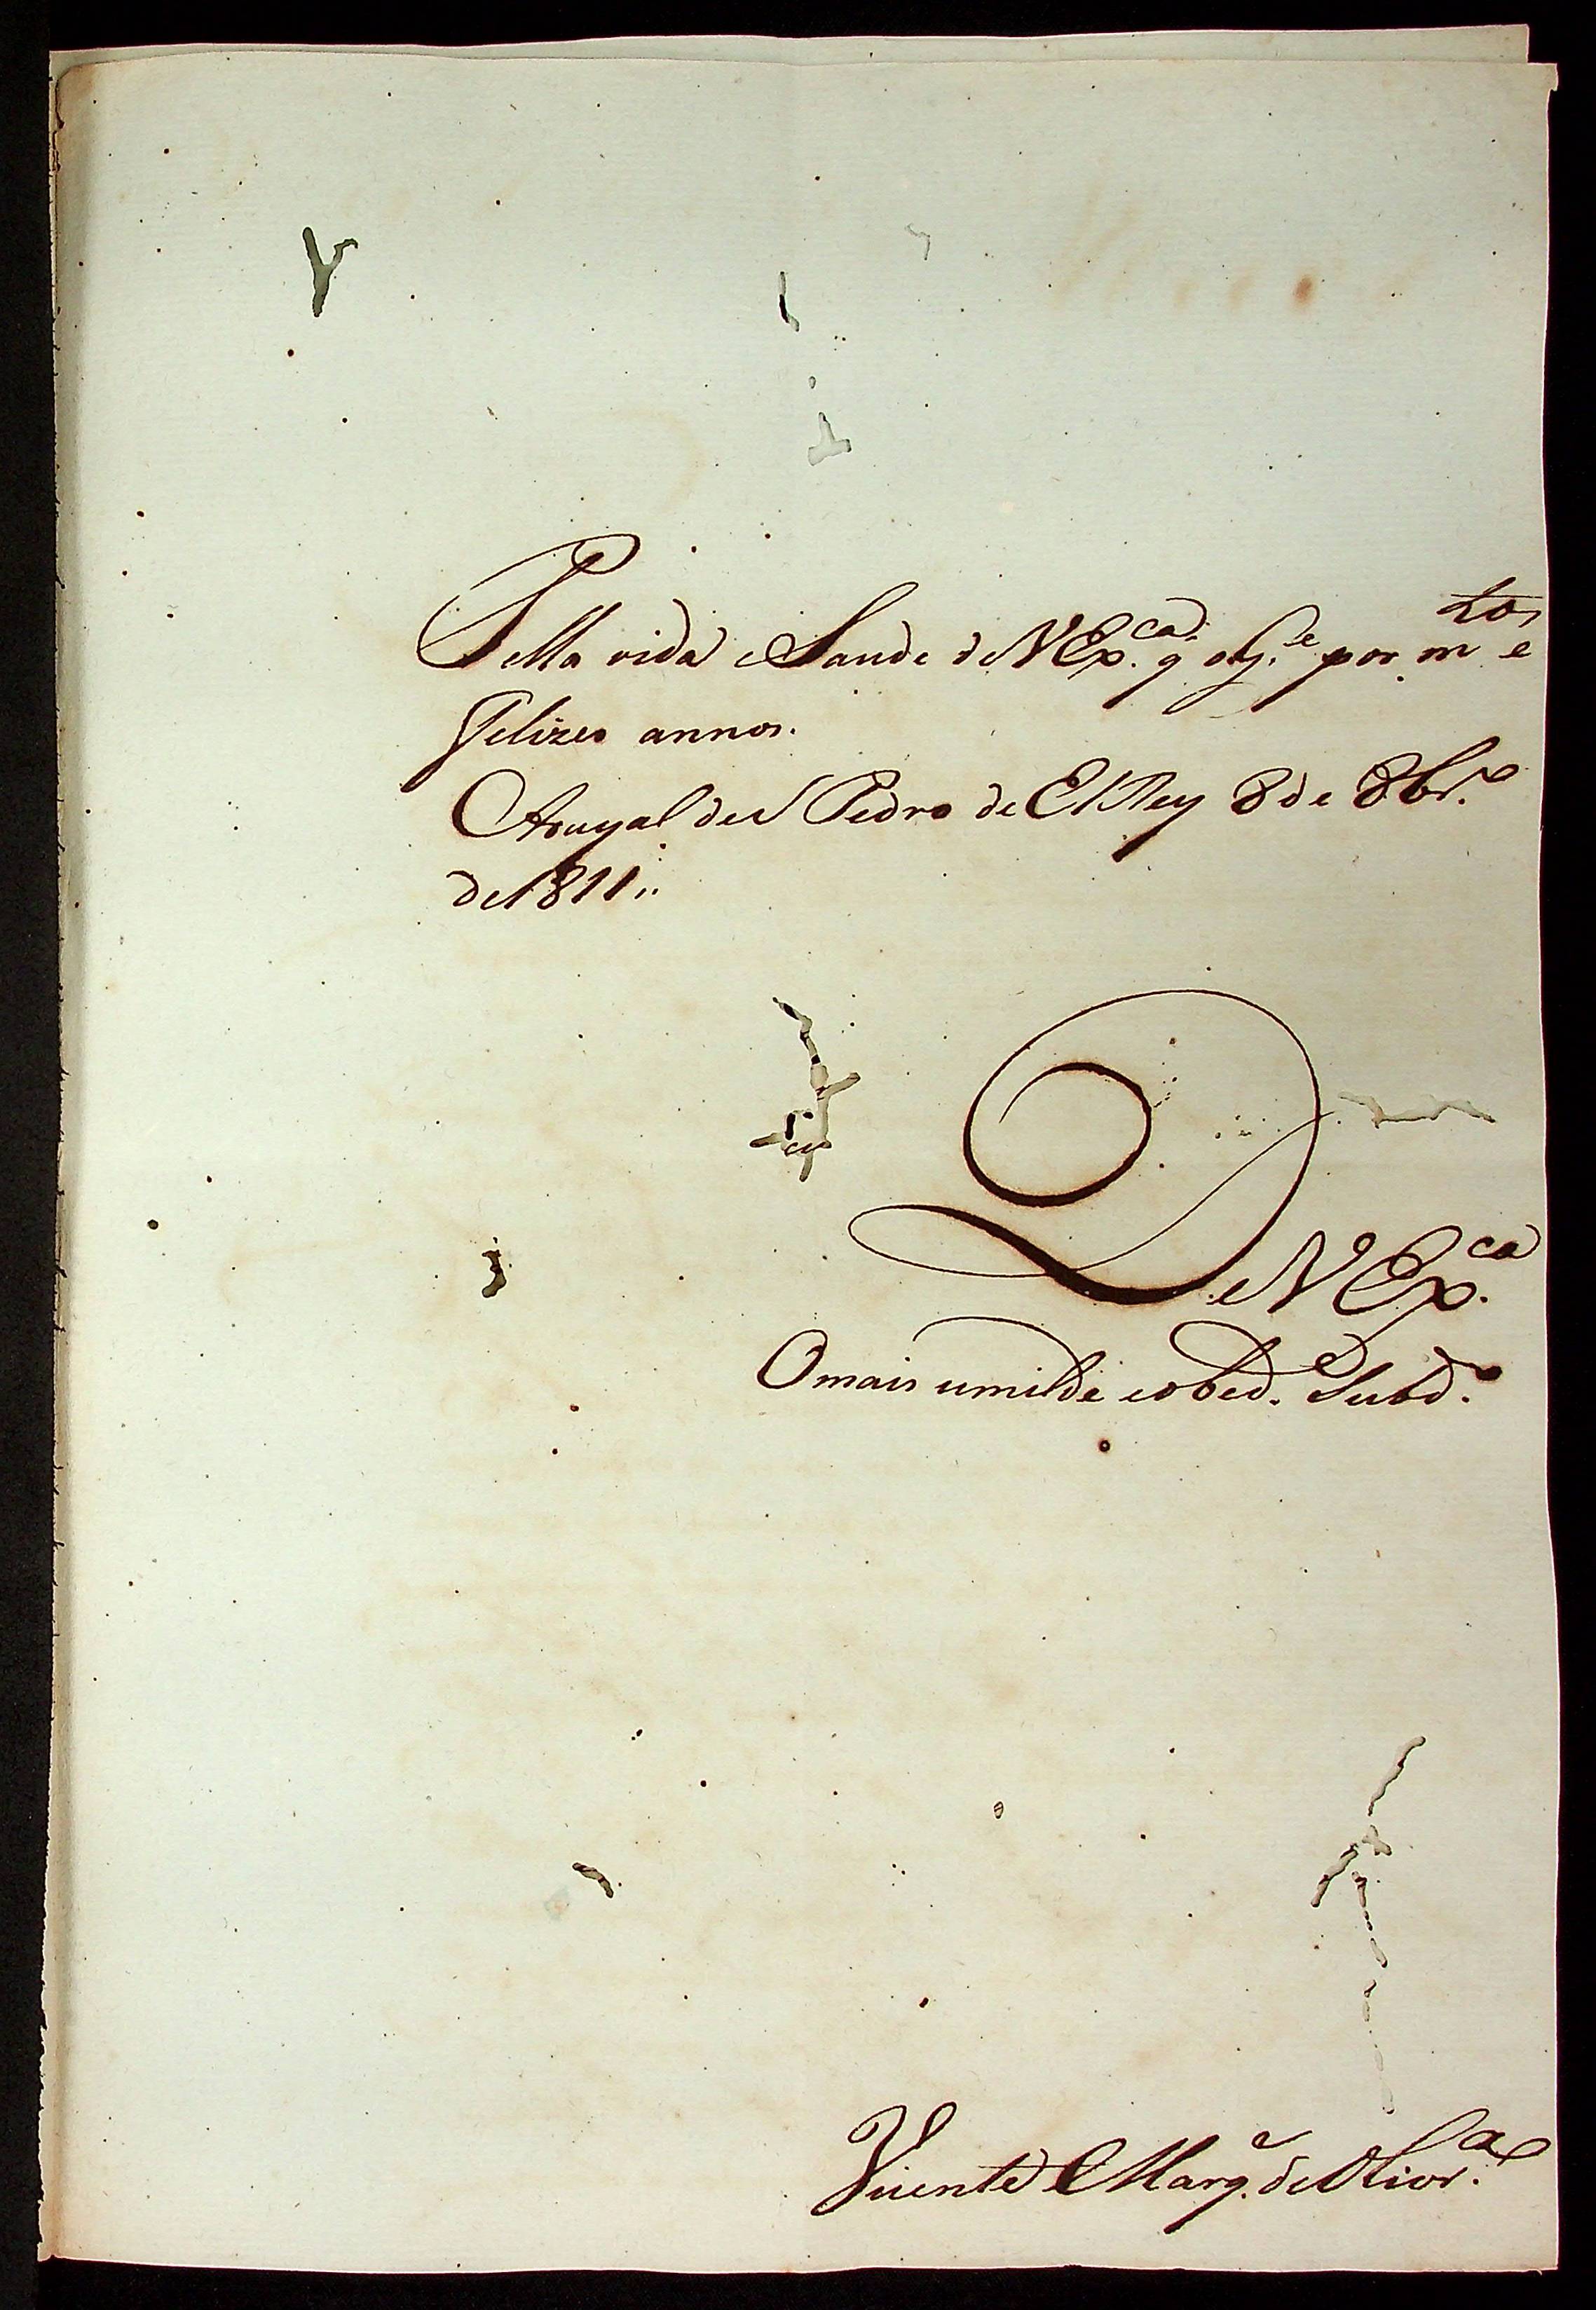 Pella vida e Saude de V Ex.ca q̃ D.s g.e por m.tos e
Felizes annos.
Arayal de S Pedro de El Rey 8 de 8br.o
de 1811.
De V Ex.ca
O mais umilde e obed. Subd.o
Vicente Marq. de Oliv.ra